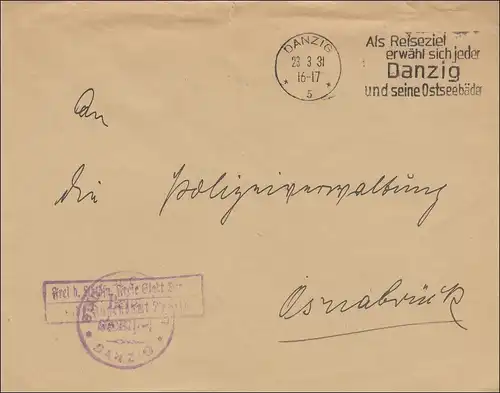 DANZIG
23 3 31
16-17
* 5 *
Als Reiseziel
erwähl sich jeder
Danzig
und seine Ostseebäder
An
die Polizeiverwaltung
Osnabrück
Frei d. Freie Stadt
* DANZIG *